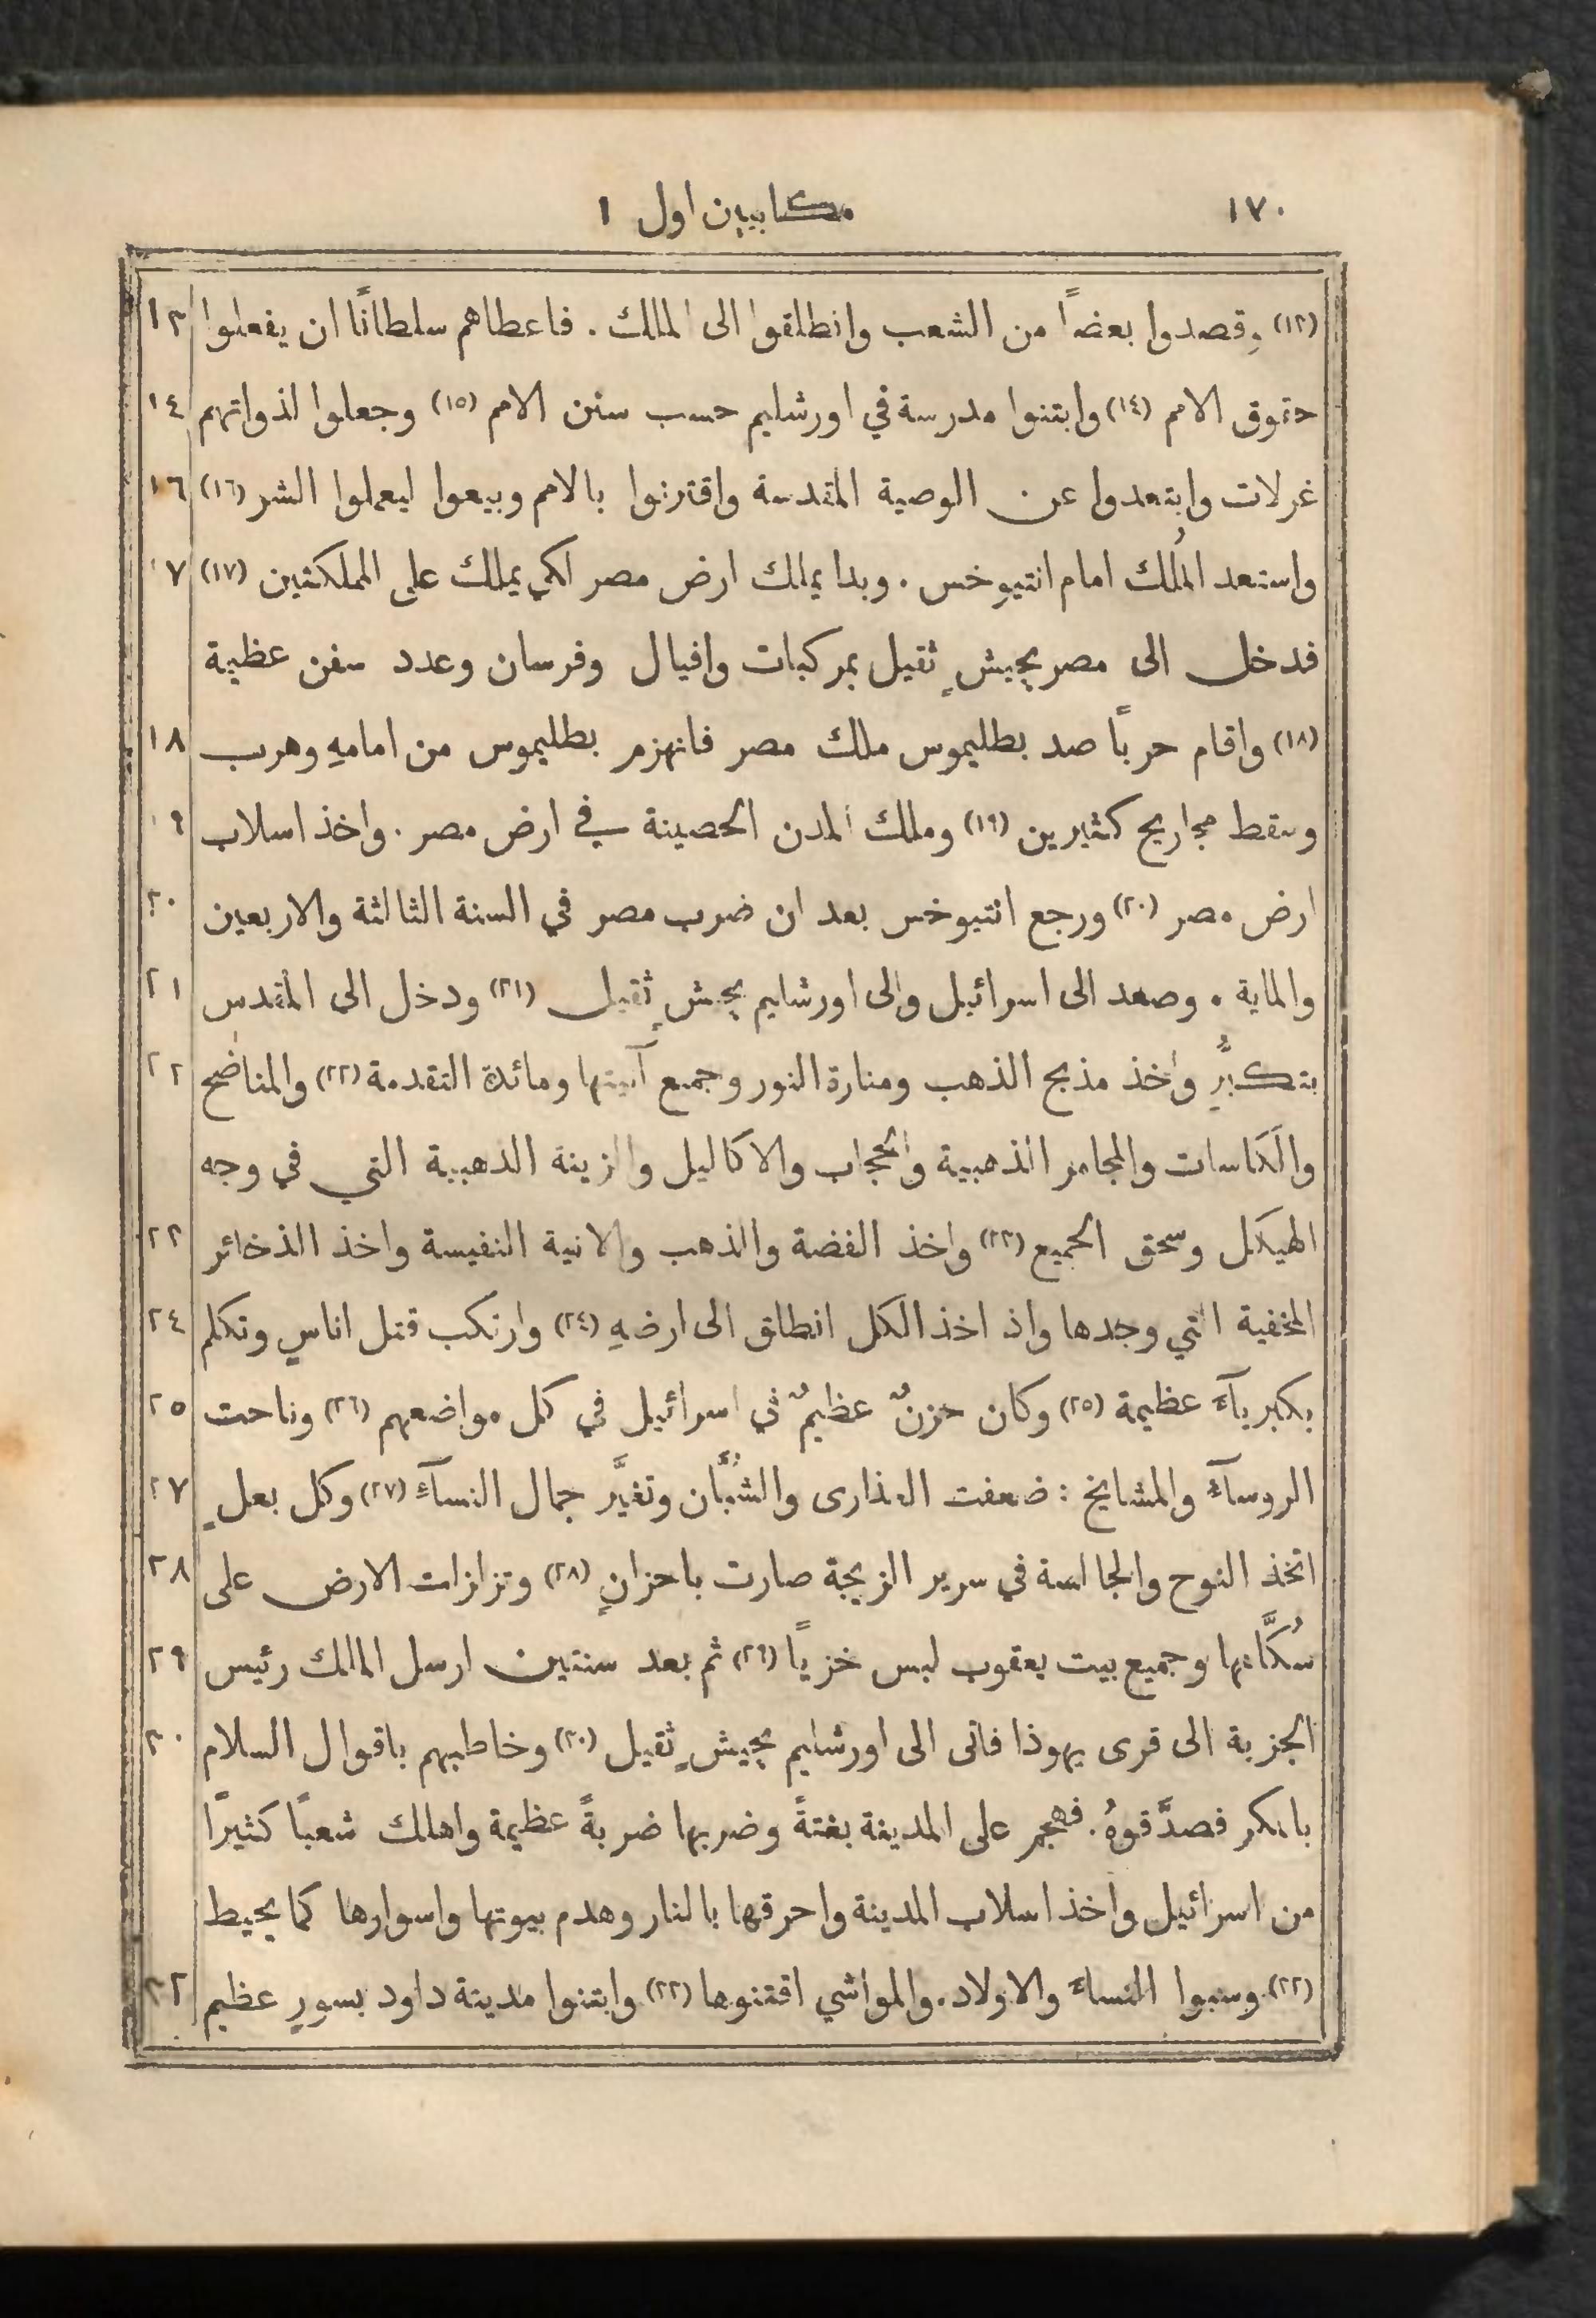 ١٧٠ مكابيين اول ١
(١٣) وقصدوا بعضاً من الشعب وانطلقوا الى الملك . فاعطاهم سلطانًا ان يفعلوا ١٣
حقوق الامم (١٤) وابتنوا مدرسة في اورشليم حسب سنن الامم (١٥) وجعلوا لذواتهم ١٤
غرلات وابتعدوا عن الوصية المقدسة واقترنوا بالامم وبيعوا ليعملوا الشر (١٦) ١٦
واستعد المُلك امام انتيوخس . وبدا يملك ارض مصر لكي يملك على المملكتين (١٧) ١٧
فدخل الى مصر بجيشٍ ثقيل بمركبات وافيال وفرسان وعدد سفن عظيمة
(١٨) واقام حربًا صد بطليموس ملك مصر فانهزم بطليموس من امامهِ وهرب ١٨
وسقط مجاريح كثيرين (١٩) وملك المدن الحصينة في ارض مصر . واخذ اسلاب ١٩
ارض مصر (٢٠) ورجع انتيوخس بعد ان ضرب مصر في السنة الثالثة والاربعين ٢٠
والماية . وصعد الى اسرائيل والى اورشليم بجيشٍ ثقيل (٢١) ودخل الى المقدس ٢١
بتكبُّرٍ واخذ مذبح الذهب ومنارة النور وجميع آنيتها ومائدة التقدمة (٢٢) والمناضح ٢٢
والكاسات والمجامر الذهبية والحجاب والاكاليل والزينة الذهبية التي في وجه
الهيكل وسحق الجميع (٢٣) واخذ الفضة والذهب والانية النفيسة واخذ الذخائر ٢٣
المخفية التي وجدها واذ اخذ الكل انطلق الى ارضهِ (٢٤) وارتكب قتل اناسٍ وتكلم ٢٤
بكبرياءَ عظيمة (٢٥) وكان حزنٌ عظيمٌ في اسرائيل في كل مواضعهم (٢٦) وناحت ٢٥
الروسآءُ والمشايخ : ضعفت العذارى والشُبَّان وتغيَّر جمال النسآءِ (٢٧) وكل بعلٍ ٢٧
اتخذ النوح والجالسة في سرير الزيجة صارت باحزانٍ (٢٨) وتزلزلت الارض على ٢٨
سُكَّانها وجميع بيت يعقوب لبس خزيًا (٢٩) ثم بعد سنتين ارسل الملك رئيس ٢٩
الجزية الى قرى يهوذا فاتى الى اورشليم بجيشٍ ثقيل (٣٠) وخاطبهم باقوال السلام ٣٠
بالمكر فصدَّقوهُ . فهجم على المدينة بغتةً وضربها ضربةً عظيمة واهلك شعبًا كثيرًا
من اسرائيل واخذ اسلاب المدينة واحرقها بالنار وهدم بيوتها واسوارها كما يحيط
(٣٢) وسبوا النساءَ والاولاد . والمواشي اقتنوها (٣٣) وابتنوا مدينة داود بسورٍ عظيم ٣٢